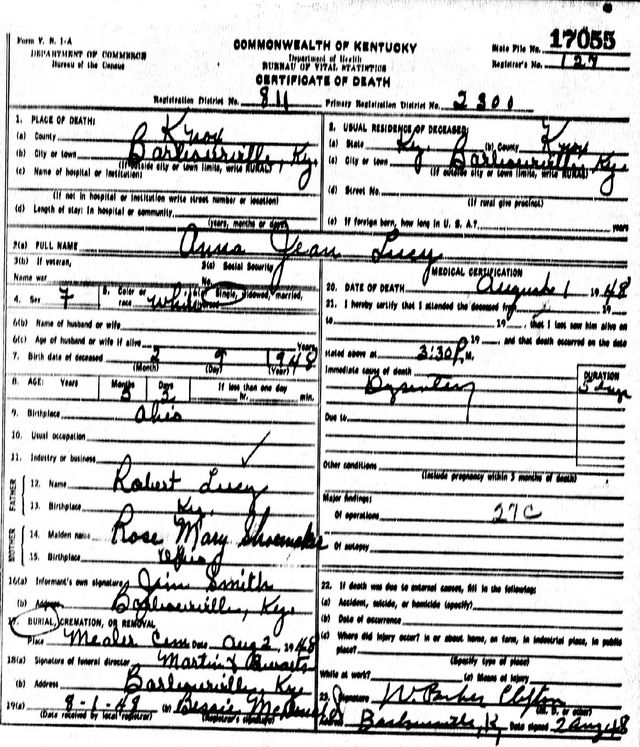 Form V. S. 1-A
DEPARTMENT OF COMMERCE
Bureau of the Census
COMMONWEALTH OF KENTUCKY
Department of Health
BUREAU OF VITAL STATISTICS
CERTIFICATE OF DEATH
State File No. 17055
Registrar's No. 127
Registration District No. 811 Primary Registration District No. 2300
1. PLACE OF DEATH:
(a) County Knox
(b) City or town Barbourville, Ky.
(If outside city or town limits, write RURAL)
(c) Name of hospital or institution:
(If not in hospital or institution write street number or location)
(d) Length of stay: In hospital or community
(years, months or days)
2. USUAL RESIDENCE OF DECEASED:
(a) State Ky. (b) County Knox
(c) City or town Barbourville, Ky.
(If outside city or town limits, write RURAL)
(d) Street No.
(If rural give precinct)
(e) If foreign born, how long in U. S. A.? years
3(a) FULL NAME Anna Jean Lucy
3(b) If veteran,
Name war
3(c) Social Security
No.
4. Sex F 5. Color or race White Single, widowed, married,
6(b) Name of husband or wife
6(c) Age of husband or wife if alive Years
7. Birth date of deceased 2 9 1948
(Month) (Day) (Year)
8. AGE: Years Months Days If less than one day
5 hr. min.
9. Birthplace Ohio
10. Usual occupation
11. Industry or business
FATHER
12. Name Robert Lucy
13. Birthplace Ky.
MOTHER
14. Maiden name Rose Mary Shoemaker
15. Birthplace Ohio
16(a) Informant's own signature Jim Smith
(b) Address Barbourville, Ky.
17. BURIAL, CREMATION, OR REMOVAL
Place Mealer Cem Date Aug 2 1948
18(a) Signature of funeral director Martin &
(b) Address Barbourville, Ky.
19(a) 8-1-48 (b) Bessie
(Date received by local registrar) (Registrar's signature)
MEDICAL CERTIFICATION
20. DATE OF DEATH August 1 1948
21. I hereby certify that I attended the deceased from 19
to 19, that I last saw him alive on
19, and that death occurred on the date
stated above at 3:30 P. M.
Immediate cause of death DURATION
Dysentery 5 days
Due to
Other conditions
(Include pregnancy within 3 months of death)
Major findings:
Of operations 27C
Of autopsy
22. If death was due to external causes, fill in the following:
(a) Accident, suicide, or homicide (specify)
(b) Date of occurrence
(c) Where did injury occur? in or about home, on farm, in industrial place, in public
place?
(Specify type of place)
While at work? (e) Means of injury
23. Signature W. Parker Clifton
(M. D. or other)
Address Barbourville, K. Date signed 2 Aug 48